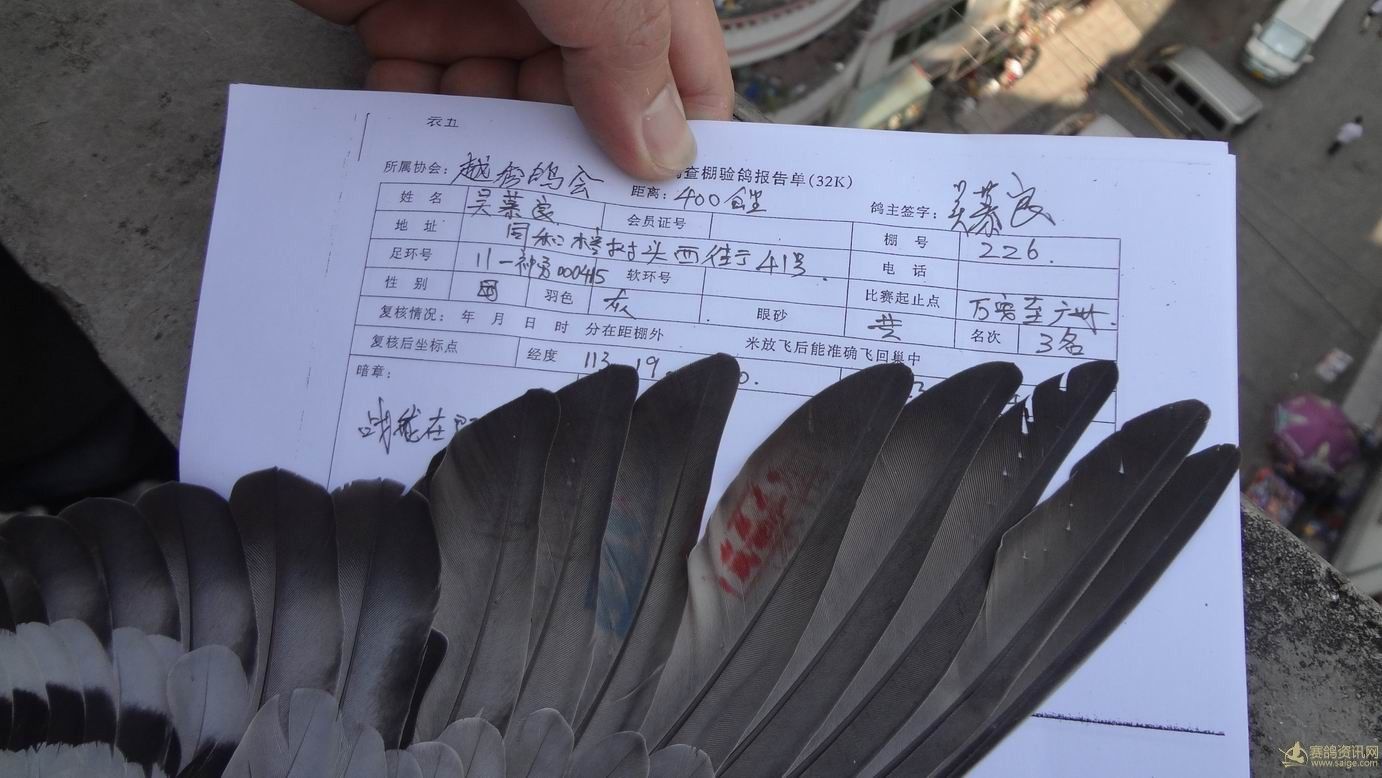 表五
查棚验鸽报告单(32K)
所属协会：越秀鸽会 距离：400公里 鸽主签字：吴慕良
姓 名 吴慕良 会员证号 棚 号 226.
地 址 同和 头西街 41号. 电 话
足环号 11- 000415 软环号 比赛起止点 万 至广州.
性 别 羽色 灰 眼砂 黄 名次 3名
复核情况： 年 月 日 时 分在距棚外 米放飞后能准确飞回巢中
复核后坐标点 经度 113 19
暗章：
赛鸽资讯网
www.saige.com